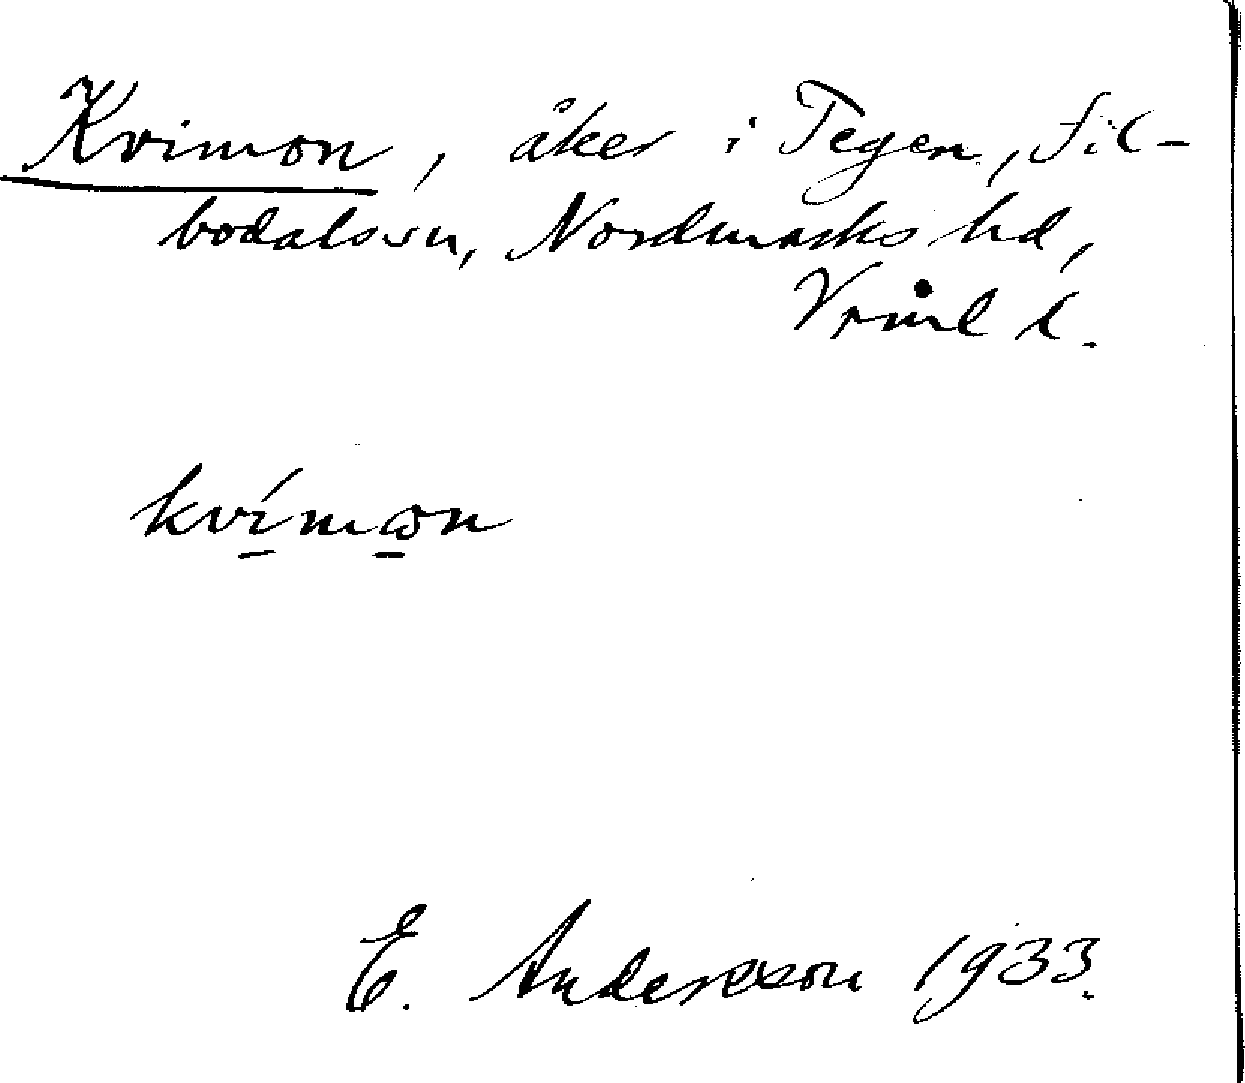 Kvimon, åker i Tegen, Sil-
bodals sn, Nordmarks hd,
Vrml l.
kvímωn
E. Andersson 1933.